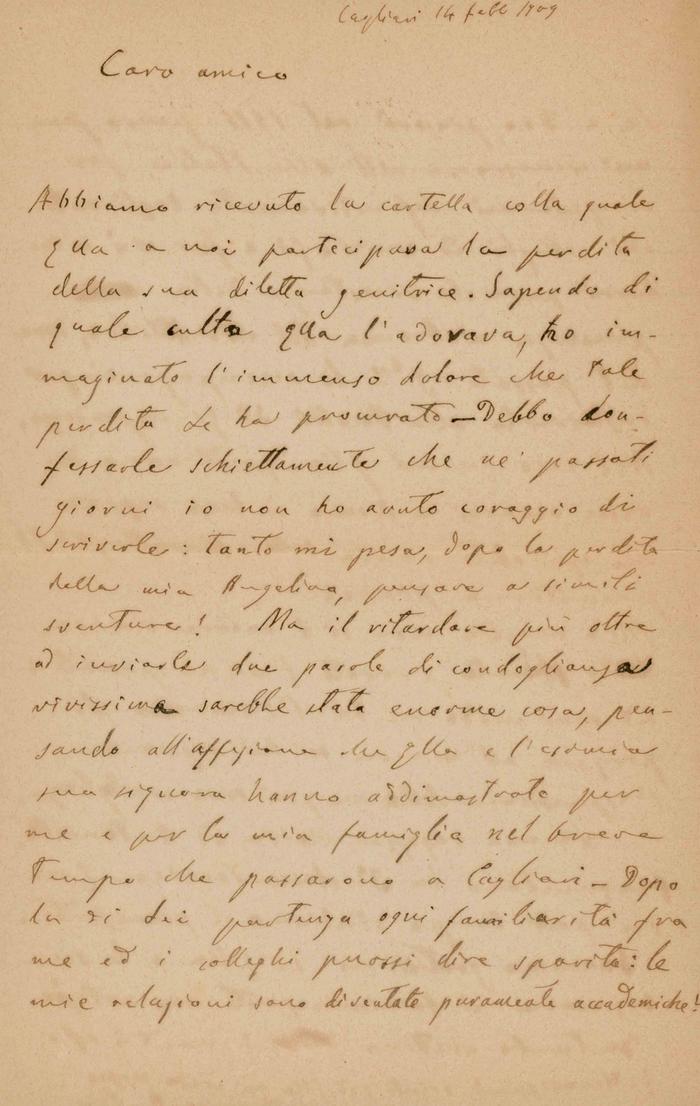 Cagliari 14 febb 1909
Caro amico
Abbiamo ricevuto la cartella colla quale
Ella a noi partecipava la perdita
della sua diletta genitrice. Sapendo di
quale culto Ella l'adorava, ho im-
maginato l'immenso dolore che tale
perdita Le ha procurato – Debbo con-
fessarle schiettamente che ne' passati
giorni io non ho avuto coraggio di
scriverle: tanto mi pesa, dopo la perdita
della mia Angelina, pensare a simili
sventure! Ma il ritardare più oltre
ad inviarle due parole di condoglianza
vivissima sarebbe stata enorme cosa, pen-
sando all'affezione che Ella e l'esimia
sua signora hanno addimostrato per
me e per la mia famiglia nel breve
tempo che passarono a Cagliari – Dopo
la di Lei partenza ogni familiarità fra
me ed i colleghi puossi dire sparita: le
mie relazioni sono diventate puramente accademiche!